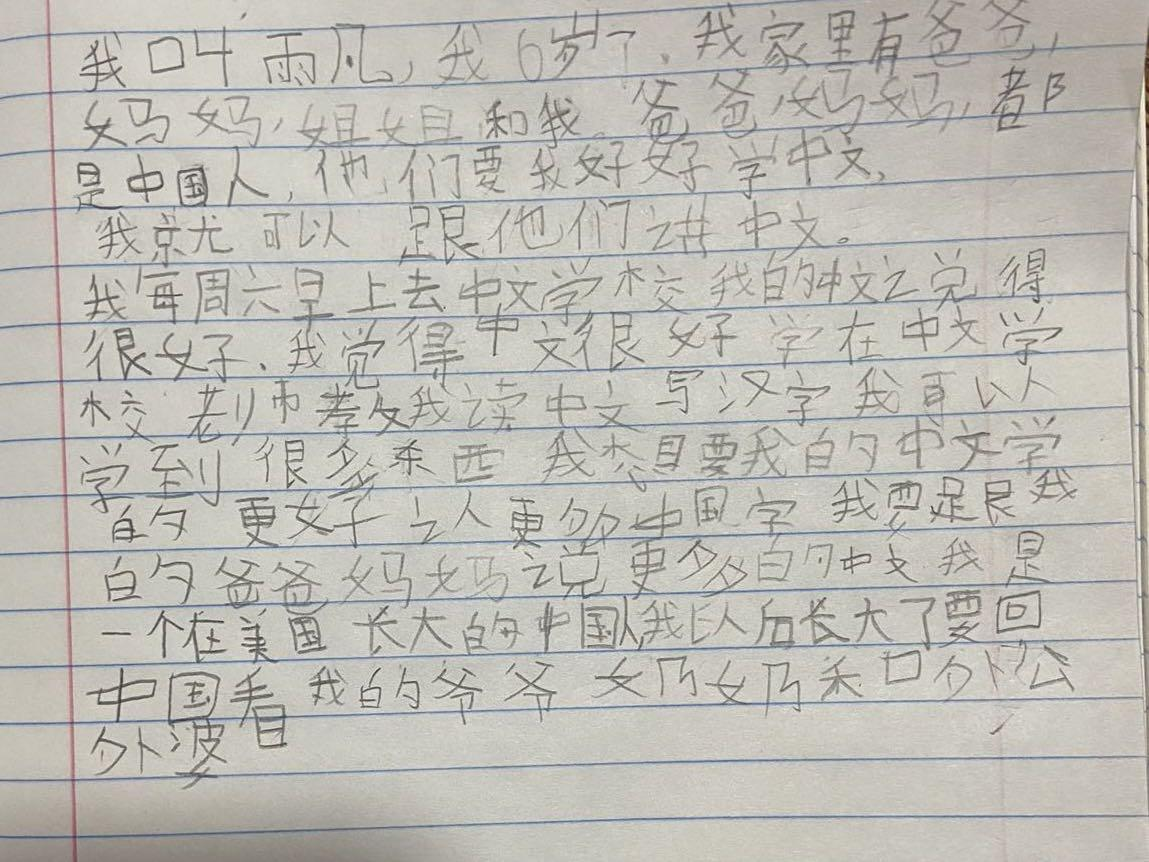 我叫雨凡，我6岁了．我家里有爸爸，
妈妈，姐姐和我。爸爸，妈妈，都
是中国人，他们要我好好学中文，
我就可以跟他们讲中文。
我每周六早上去中文学校 我的中文说得
很好．我觉得中文很好学在中文学
校 老师教我读中文 写汉字 我可以
学到很多东西 我想要我的中文学
的更好认更多中国字 我要跟我
的爸爸妈妈说更多的中文 我是
一个在美国长大的中国人我以后长大了要回
中国看我的爷爷 奶奶和外公
外婆